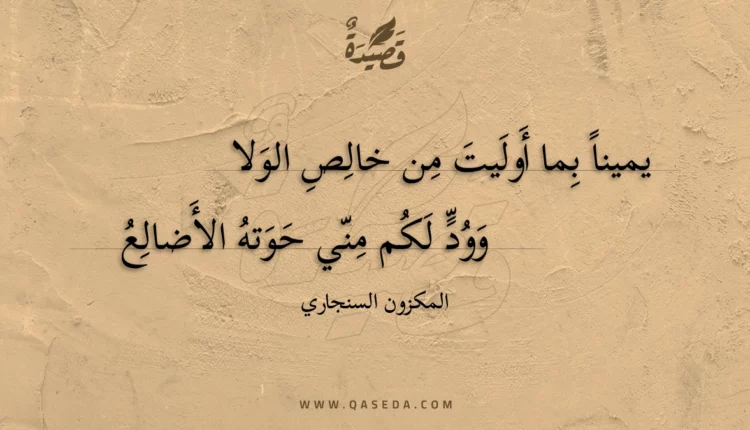 قَصِيدَةٌ
يميناً بِما أَولَيتَ مِن خالِصِ الوَلا
وَوُدٍّ لَكُم مِنّي حَوَتهُ الأَضالِعُ
المكزون السنجاري
WWW.QASEDA.COM